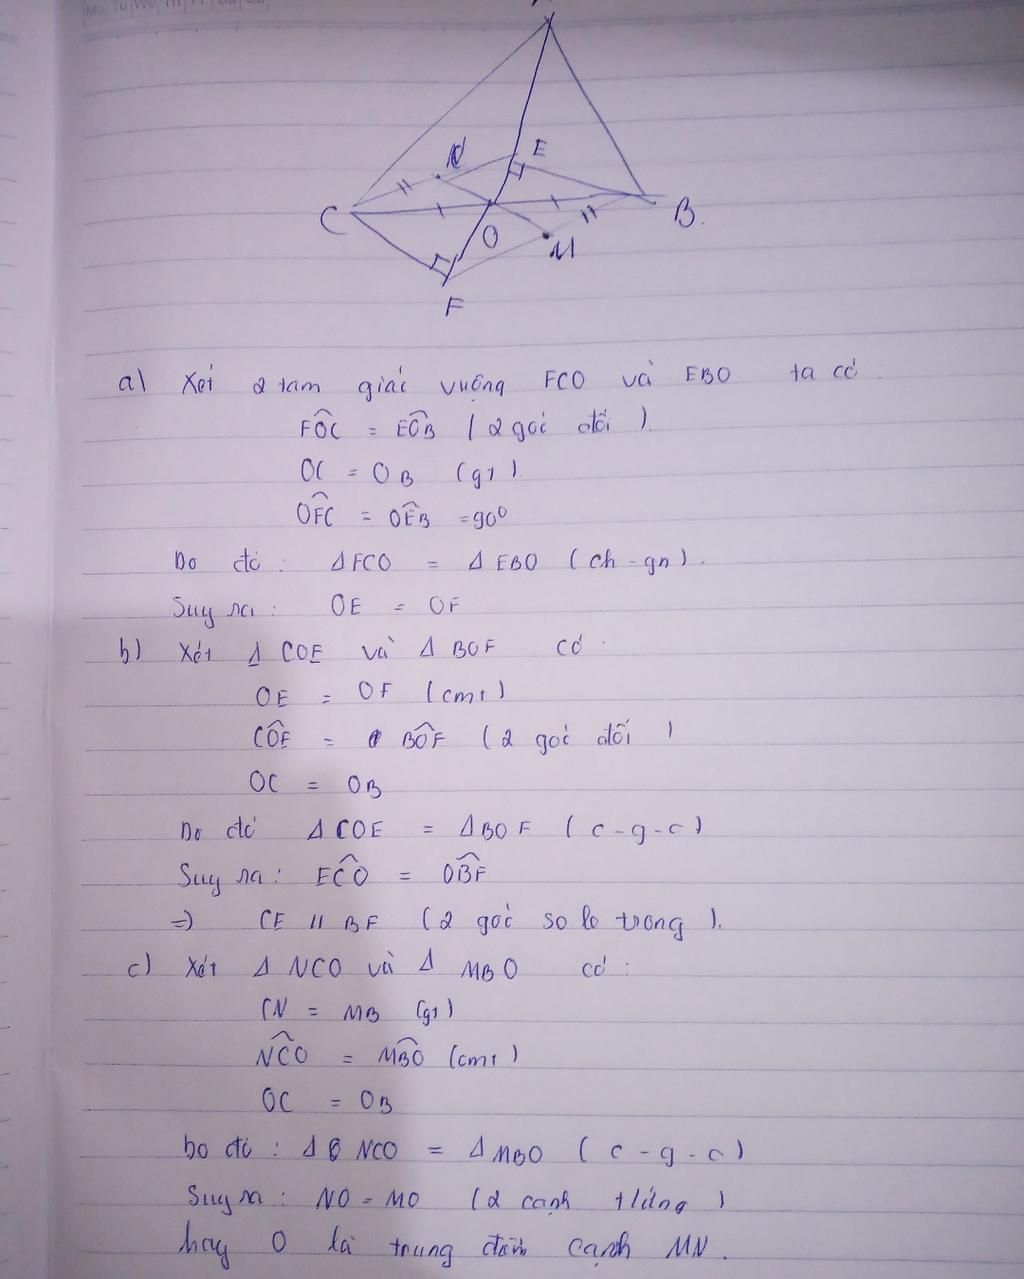 N
E
C
B.
O
M
F
a) Xét 2 tam giác vuông FCO và EBO ta có
FOC = EOB ( 2 góc đối ).
OC = OB (gt).
OFC = OEB = 90⁰
Do đó : Δ FCO = Δ EBO ( ch - gn ).
Suy ra : OE = OF
b) Xét Δ COE và Δ BOF có :
OE = OF (cmt)
COE = BOF ( 2 góc đối )
OC = OB
Do đó Δ COE = Δ BOF ( c - g - c )
Suy ra : ECO = OBF
=) CE // BF ( 2 góc so le trong ).
c) Xét Δ NCO và Δ MBO có :
CN = MB (gt)
NCO = MBO (cmt)
OC = OB
Do đó : Δ NCO = Δ MBO ( c - g - c )
Suy ra : NO = MO ( 2 cạnh tứng )
hay O là trung điểm cạnh MN .